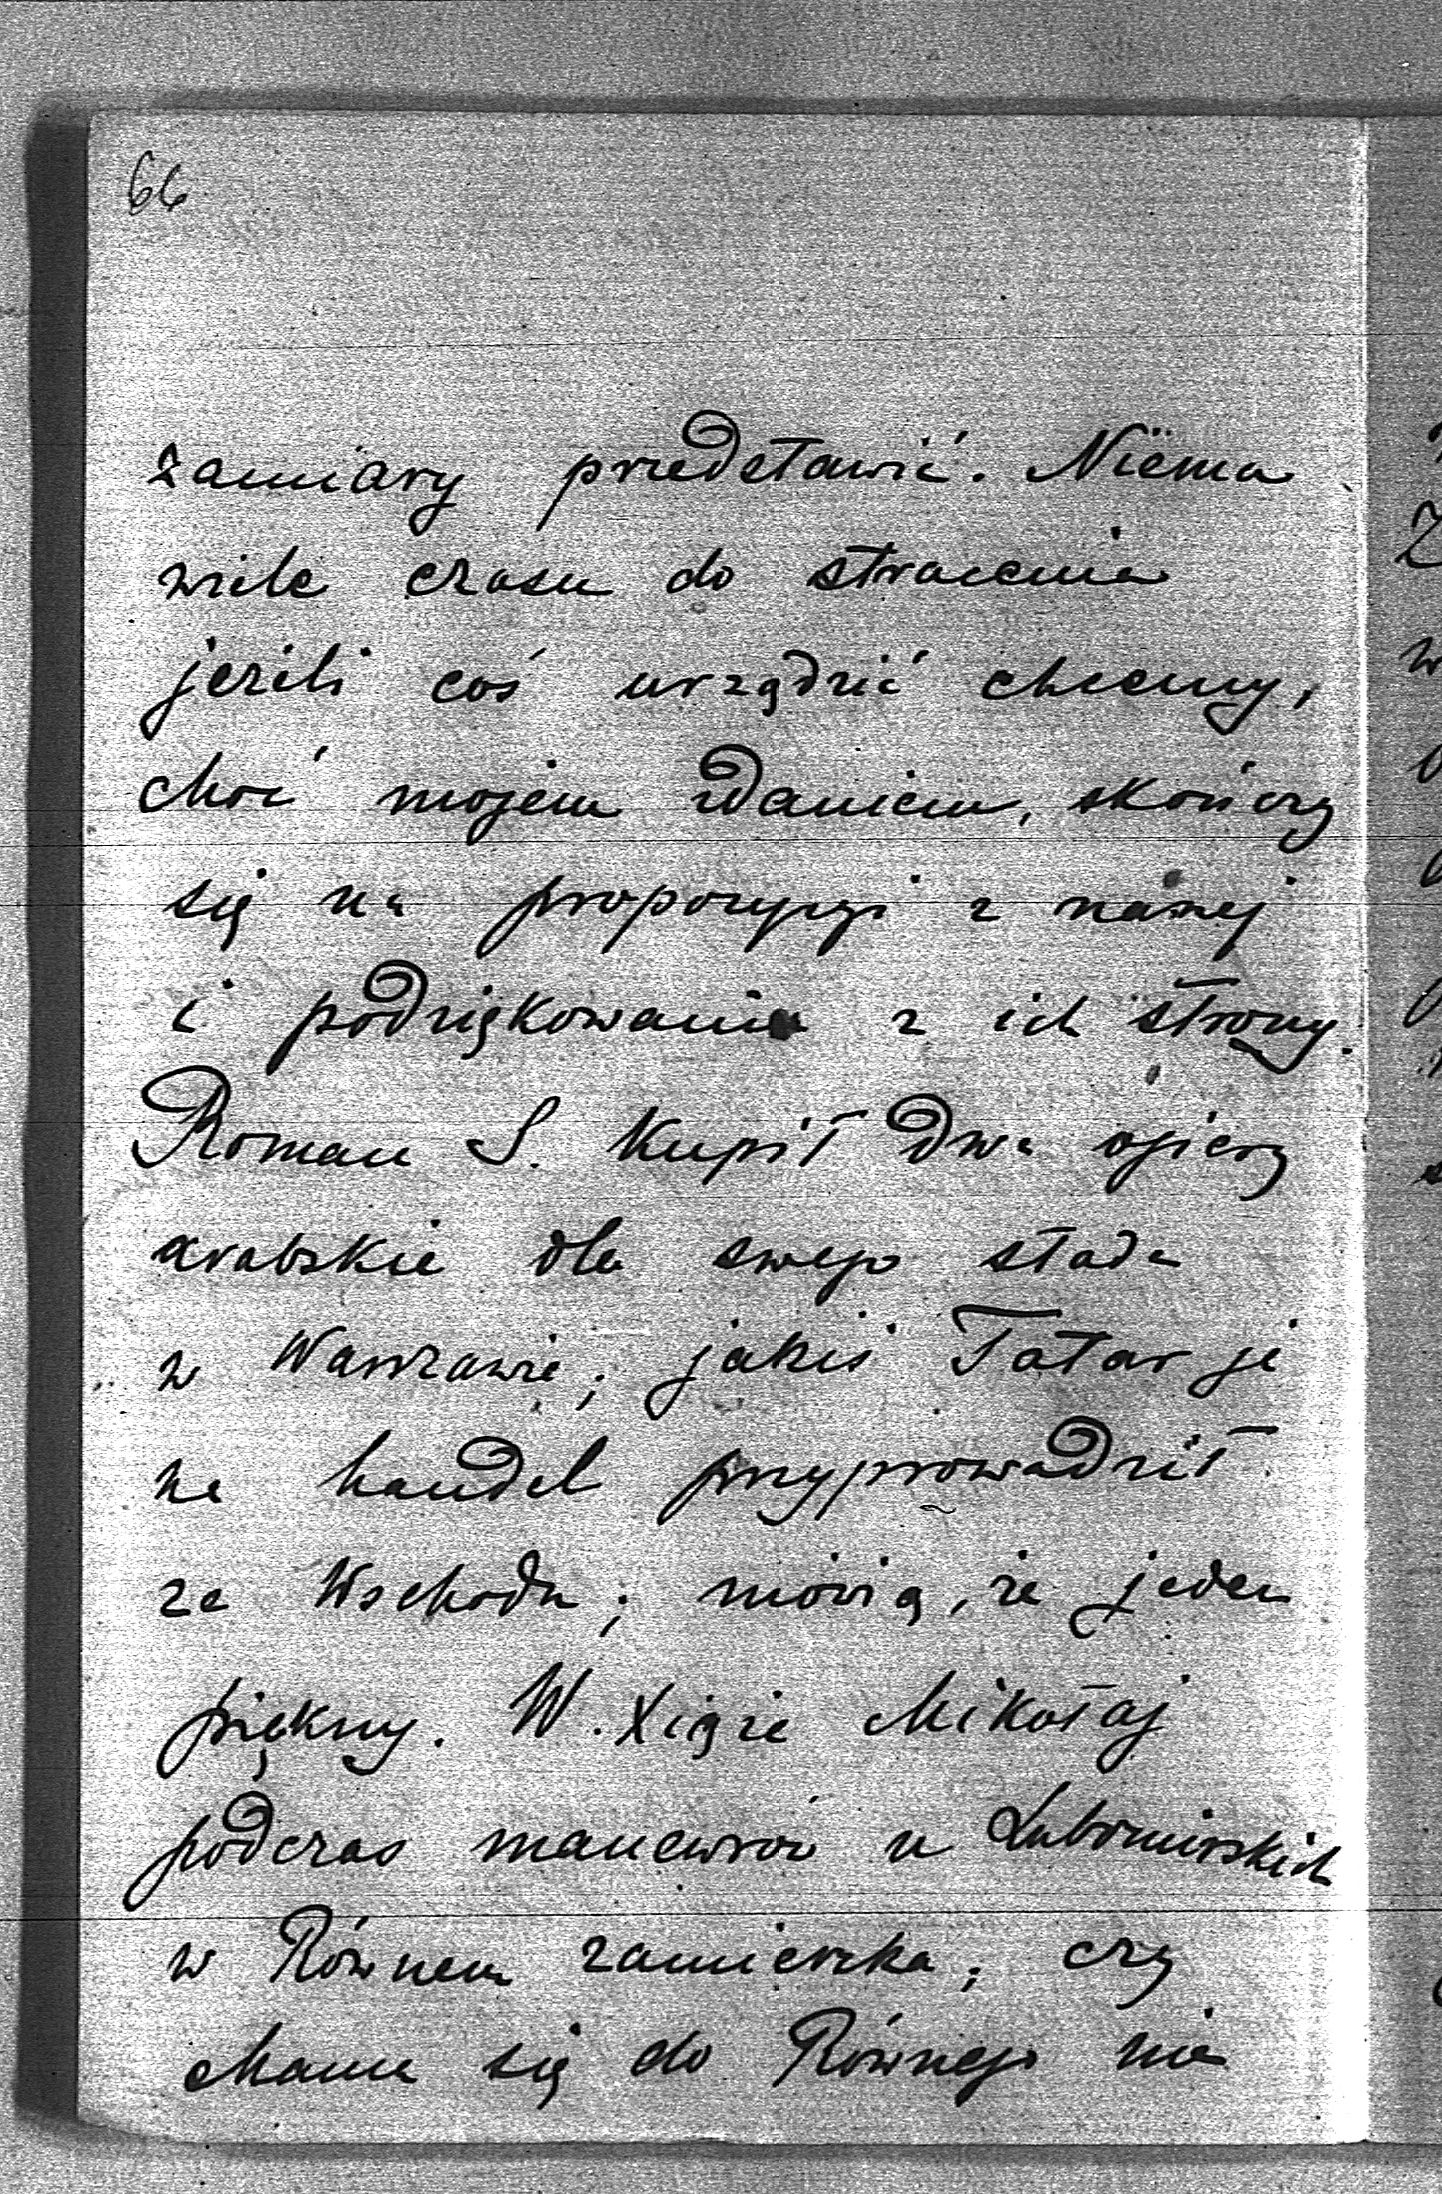 66
zamiary przedstawić. Niema
wiele czasu do stracenia
jeżeli coś urządzić chcemy,
choć mojem zdaniem, skończy
się na propozycyi z naszej
i podziękowania z ich strony.
Roman S. kupił dwa ogiery
arabskie dla swego stada
w Warszawie; jakiś Tatar je
na handel przyprowadził
ze Wschodu; mówią, że jeden
piękny. W. Xiąże Mikołaj
podczas manewrów u Lubomirskich
w Równem zamieszka; czy
Mama się do Równego nie